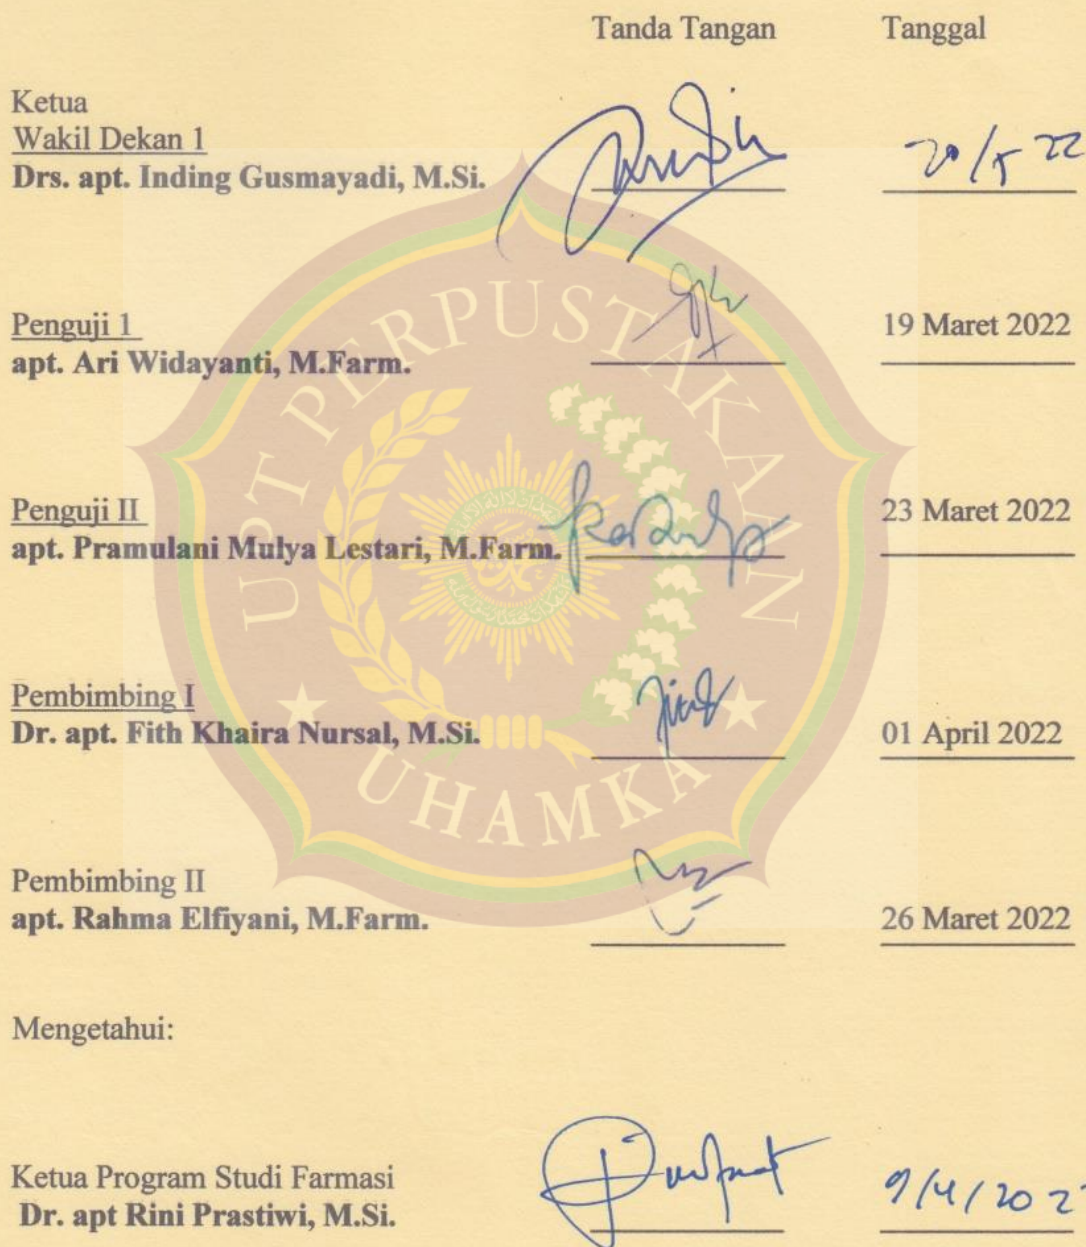 Tanda Tangan Tanggal
Ketua
Wakil Dekan 1
Drs. apt. Inding Gusmayadi, M.Si. 20/5 22
Penguji 1 19 Maret 2022
apt. Ari Widayanti, M.Farm.
Penguji II 23 Maret 2022
apt. Pramulani Mulya Lestari, M.Farm.
Pembimbing I
Dr. apt. Fith Khaira Nursal, M.Si. 01 April 2022
Pembimbing II
apt. Rahma Elfiyani, M.Farm. 26 Maret 2022
Mengetahui:
Ketua Program Studi Farmasi
Dr. apt Rini Prastiwi, M.Si. 9/4/202
UPT PERPUSTAKAAN
UHAMKA